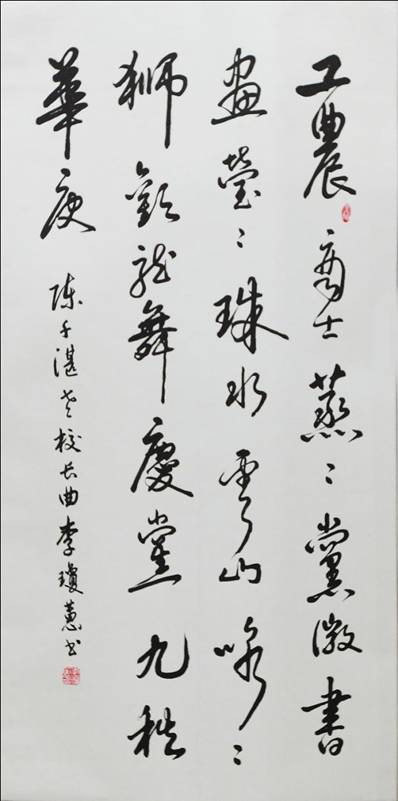 工農商士蒸〻黨徽書
畫瑩〻珠水雲山咏〻
獅歡龍舞慶黨九秩
華庚
陳千湛老校長曲李瓊蕙書